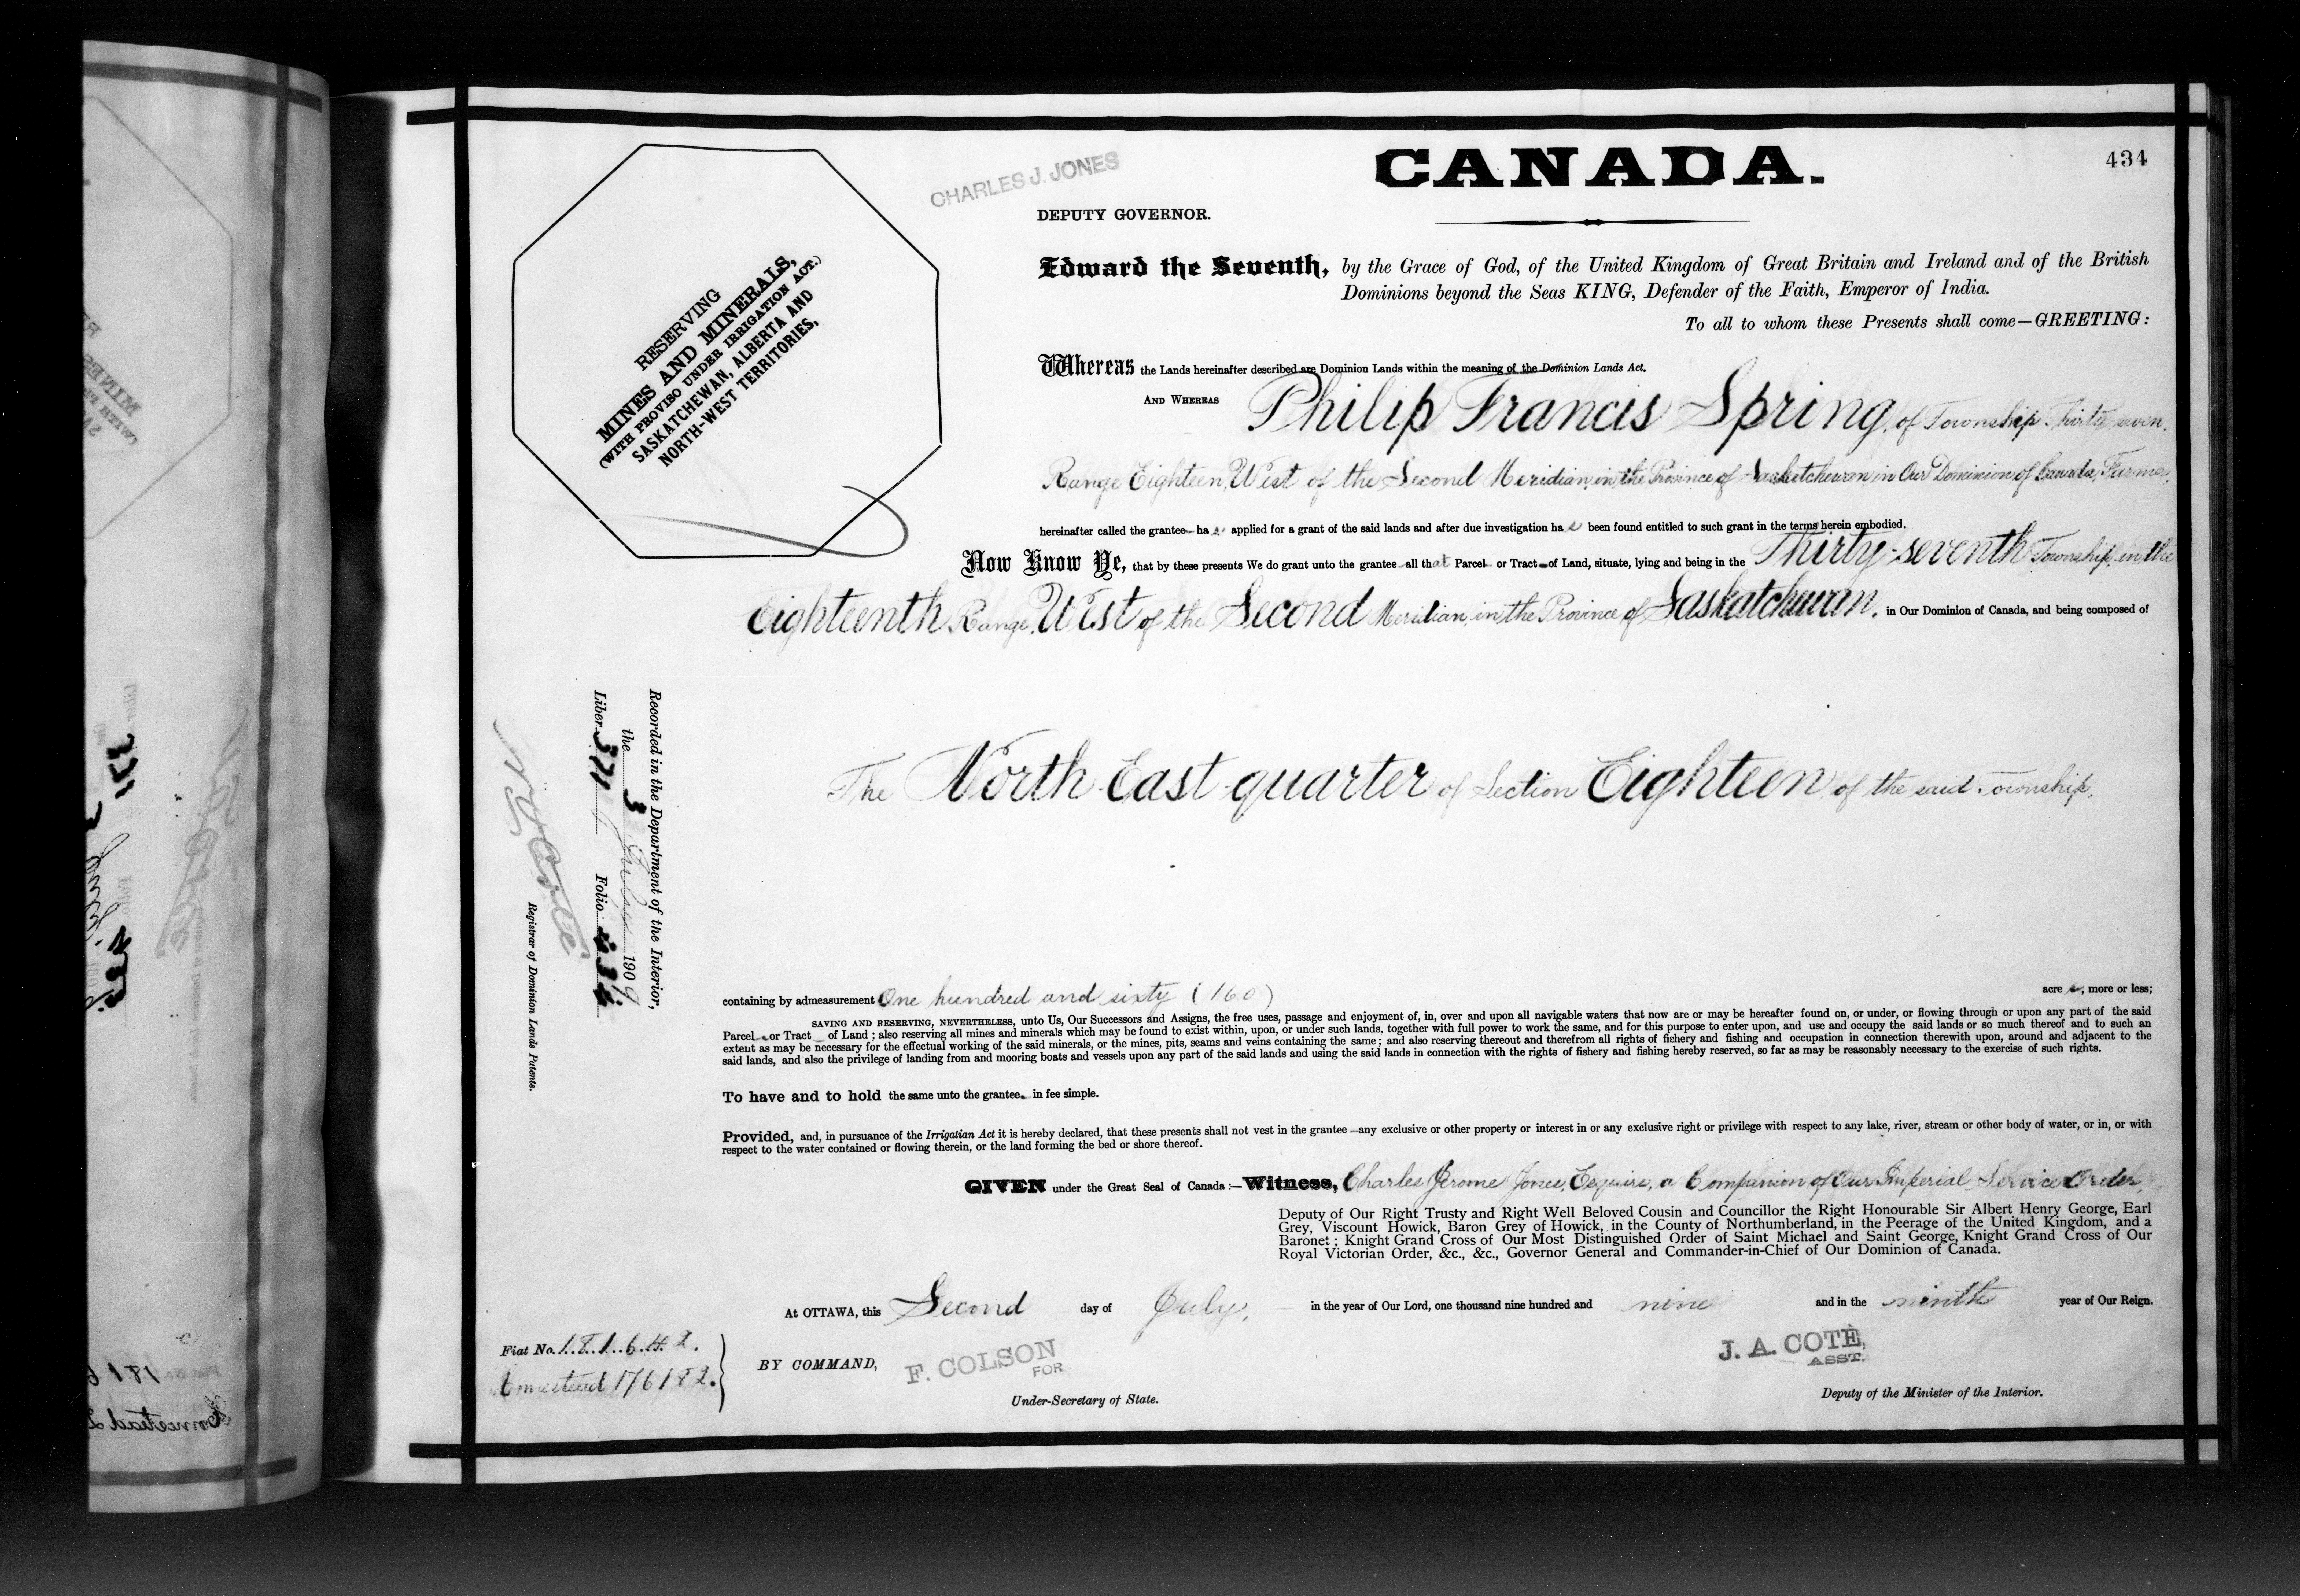 434
CANADA.
CHARLES J. JONES
DEPUTY GOVERNOR.
RESERVING
MINES AND MINERALS,
(WITH PROVISO UNDER IRRIGATION ACT.)
SASKATCHEWAN, ALBERTA AND
NORTH-WEST TERRITORIES,
Edward the Seventh, by the Grace of God, of the United Kingdom of Great Britain and Ireland and of the British
Dominions beyond the Seas KING, Defender of the Faith, Emperor of India.
To all to whom these Presents shall come—GREETING:
Whereas the Lands hereinafter described are Dominion Lands within the meaning of the Dominion Lands Act.
AND WHEREAS Philip Francis Spring, of Township Thirty-seven,
Range Eighteen, West of the Second Meridian, in the Province of Saskatchewan in Our Dominion of Canada, Farmer,
hereinafter called the grantee has applied for a grant of the said lands and after due investigation has been found entitled to such grant in the terms herein embodied.
Now Know Ye, that by these presents We do grant unto the grantee all that Parcel or Tract of Land, situate, lying and being in the Thirty-seventh Township, in the
Eighteenth Range, West of the Second Meridian, in the Province of Saskatchewan, in Our Dominion of Canada, and being composed of
The North East quarter of Section Eighteen of the said Township,
Recorded in the Department of the Interior,
the 3 July 1909
Liber 371 Folio 434
Registrar of Dominion Lands Patents.
containing by admeasurement One hundred and sixty (160) acres, more or less;
SAVING AND RESERVING, NEVERTHELESS, unto Us, Our Successors and Assigns, the free uses, passage and enjoyment of, in, over and upon all navigable waters that now are or may be hereafter found on, or under, or flowing through or upon any part of the said
Parcel or Tract of Land; also reserving all mines and minerals which may be found to exist within, upon, or under such lands, together with full power to work the same, and for this purpose to enter upon, and use and occupy the said lands or so much thereof and to such an
extent as may be necessary for the effectual working of the said minerals, or the mines, pits, seams and veins containing the same; and also reserving thereout and therefrom all rights of fishery and fishing and occupation in connection therewith upon, around and adjacent to the
said lands, and also the privilege of landing from and mooring boats and vessels upon any part of the said lands and using the said lands in connection with the rights of fishery and fishing hereby reserved, so far as may be reasonably necessary to the exercise of such rights.
To have and to hold the same unto the grantee in fee simple.
Provided, and, in pursuance of the Irrigation Act it is hereby declared, that these presents shall not vest in the grantee any exclusive or other property or interest in or any exclusive right or privilege with respect to any lake, river, stream or other body of water, or in, or with
respect to the water contained or flowing therein, or the land forming the bed or shore thereof.
GIVEN under the Great Seal of Canada:—Witness, Charles Jerome Jones, Esquire, a Companion of Our Imperial Service Order,
Deputy of Our Right Trusty and Right Well Beloved Cousin and Councillor the Right Honourable Sir Albert Henry George, Earl
Grey, Viscount Howick, Baron Grey of Howick, in the County of Northumberland, in the Peerage of the United Kingdom, and a
Baronet; Knight Grand Cross of Our Most Distinguished Order of Saint Michael and Saint George, Knight Grand Cross of Our
Royal Victorian Order, &c., &c., Governor General and Commander-in-Chief of Our Dominion of Canada.
At OTTAWA, this Second day of July, in the year of Our Lord, one thousand nine hundred and nine and in the ninth year of Our Reign.
Fiat No. 181642.
Homestead 176182.
BY COMMAND,
F. COLSON
FOR
Under-Secretary of State.
J. A. COTÈ,
ASST.
Deputy of the Minister of the Interior.